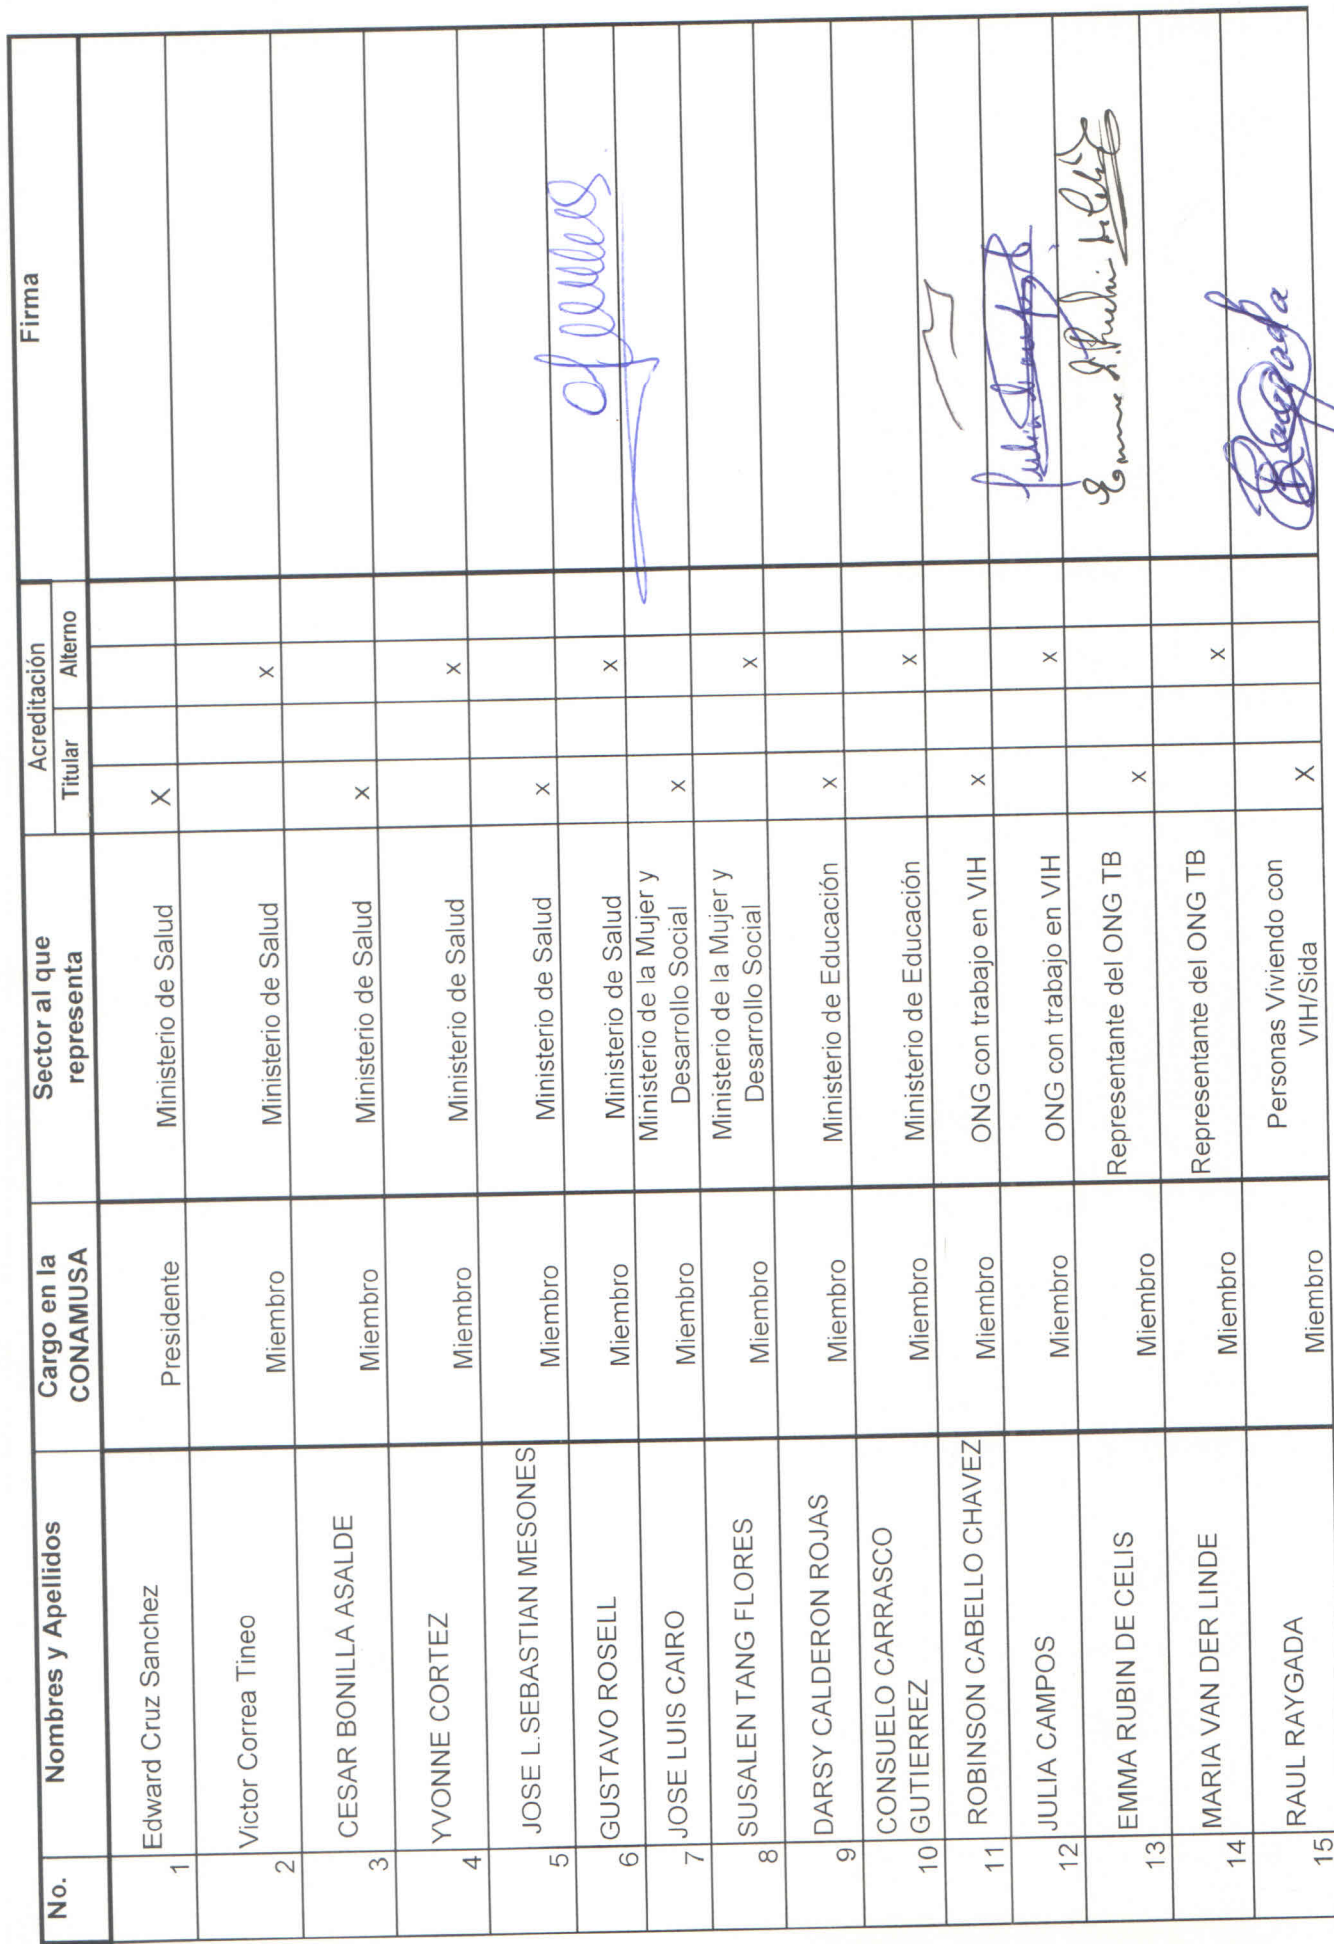 No. Nombres y Apellidos Cargo en la CONAMUSA Sector al que representa Acreditación Firma
Titular Alterno
1 Edward Cruz Sanchez Presidente Ministerio de Salud X
2 Victor Correa Tineo Miembro Ministerio de Salud x
3 CESAR BONILLA ASALDE Miembro Ministerio de Salud x
4 YVONNE CORTEZ Miembro Ministerio de Salud x
5 JOSE L.SEBASTIAN MESONES Miembro Ministerio de Salud x
6 GUSTAVO ROSELL Miembro Ministerio de Salud x
7 JOSE LUIS CAIRO Miembro Ministerio de la Mujer y Desarrollo Social x
8 SUSALEN TANG FLORES Miembro Ministerio de la Mujer y Desarrollo Social x
9 DARSY CALDERON ROJAS Miembro Ministerio de Educación x
10 CONSUELO CARRASCO GUTIERREZ Miembro Ministerio de Educación x
11 ROBINSON CABELLO CHAVEZ Miembro ONG con trabajo en VIH x
12 JULIA CAMPOS Miembro ONG con trabajo en VIH x
13 EMMA RUBIN DE CELIS Miembro Representante del ONG TB x
14 MARIA VAN DER LINDE Miembro Representante del ONG TB x
15 RAUL RAYGADA Miembro Personas Viviendo con VIH/Sida X